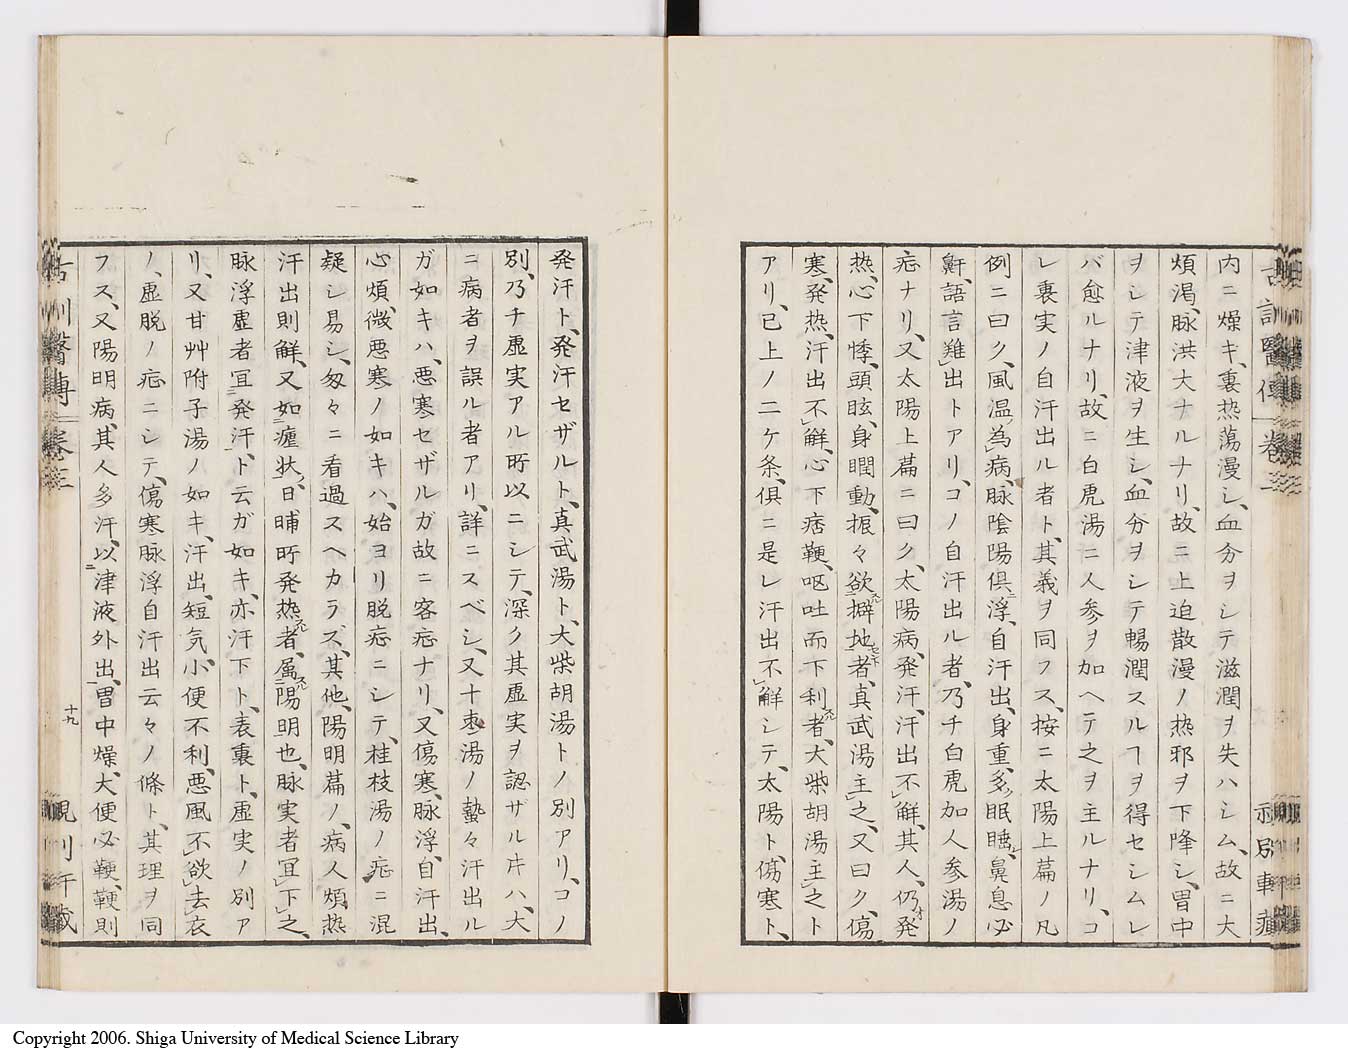 内ニ燥キ、裏热蕩漫シ、血分ヲシテ滋潤ヲ失ハシム、故ニ大
煩渇、脉洪大ナルナリ、故ニ上迫散漫ノ热邪ヲ下降シ、胃中
ヲシテ津液ヲ生シ、血分ヲシテ暢潤スルヿヲ得セシムレ
バ愈ルナリ、故ニ白虎湯ニ人参ヲ加ヘテ之ヲ主ルナリ、コ
レ裏実ノ自汗出ル者ト、其義ヲ同フス、按ニ太陽上篇ノ凡
例ニ曰ク、風温為病、脉陰陽倶浮、自汗出、身重、多眠睡、鼻息必
鼾、語言難出トアリ、コノ自汗出ル者、乃チ白虎加人参湯ノ
疟ナリ、又太陽上篇ニ曰ク、太陽病、発汗、汗出不解、其人、仍発
热、心下悸、頭眩、身瞤動、振々欲擗地者、真武湯主之、又曰ク、傷
寒、発热、汗出不解、心下痞鞕、呕吐而下利者、大柴胡湯主之ト
アリ、已上ノ二ケ条、倶ニ是レ汗出不解シテ、太陽ト、傷寒ト、
発汗ト、発汗セザルト、真武湯ト、大柴胡湯トノ別アリ、コノ
別、乃チ虚実アル所以ニシテ、深ク其虚実ヲ認ザル片ハ、大
ニ病者ヲ誤ル者アリ、詳ニスベシ、又十枣湯ノ蟄々汗出ル
ガ如キハ、悪寒セザルガ故ニ客疟ナリ、又傷寒、脉浮、自汗出、
心煩、微悪寒ノ如キハ、始ヨリ脱疟ニシテ、桂枝湯ノ疟ニ混
疑シ易シ、匆々ニ看過スヘカラズ、其他、陽明篇ノ、病人煩热
汗出則解、又如瘧状、日晡所発热者、属陽明也、脉実者冝下之、
脉浮虚者冝発汗、ト云ガ如キ、亦汗下ト、表裏ト、虚実ノ別ア
リ、又甘艸附子湯ノ如キ、汗出、短気、小便不利、悪風不欲去衣
ノ、虚脱ノ疟ニシテ、傷寒脉浮自汗出云々ノ條ト、其理ヲ同
フス、又陽明病、其人多汗、以津液外出、胃中燥、大便必鞕、鞕則
十九